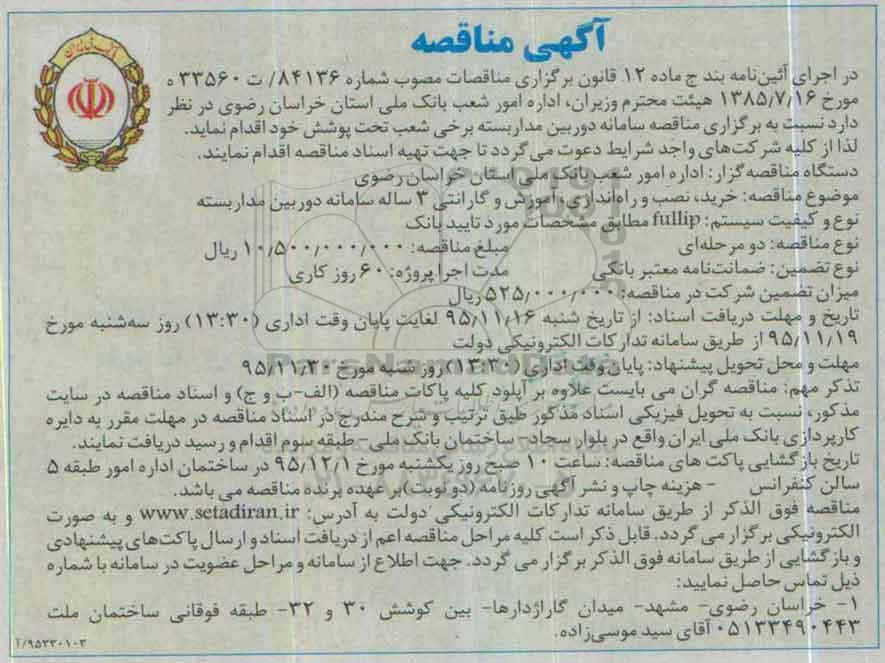 آگهی مناقصه
در اجرای آئین‌نامه بند ج ماده ۱۲ قانون برگزاری مناقصات مصوب شماره ۸۴۱۳۶/ ت ۳۳۵۶۰ ه
مورخ ۱۳۸۵/۷/۱۶ هیئت محترم وزیران، اداره امور شعب بانک ملی استان خراسان رضوی در نظر
دارد نسبت به برگزاری مناقصه سامانه دوربین مداربسته برخی شعب تحت پوشش خود اقدام نماید.
لذا از کلیه شرکت‌های واجد شرایط دعوت می‌گردد تا جهت تهیه اسناد مناقصه اقدام نمایند.
دستگاه مناقصه‌گزار: اداره امور شعب بانک ملی استان خراسان رضوی
موضوع مناقصه: خرید، نصب و راه‌اندازی، آموزش و گارانتی ۳ ساله سامانه دوربین مداربسته
نوع و کیفیت سیستم: fullip مطابق مشخصات مورد تایید بانک
نوع مناقصه: دو مرحله‌ای مبلغ مناقصه: ۱۰٫۵۰۰٫۰۰۰٫۰۰۰ ریال
نوع تضمین: ضمانت‌نامه معتبر بانکی مدت اجرا پروژه: ۶۰ روز کاری
میزان تضمین شرکت در مناقصه: ۵۲۵٫۰۰۰٫۰۰۰ ریال
تاریخ و مهلت دریافت اسناد: از تاریخ شنبه ۹۵٫۱۱٫۱۶ لغایت پایان وقت اداری (۱۳:۳۰) روز سه‌شنبه مورخ
۹۵٫۱۱٫۱۹ از طریق سامانه تدارکات الکترونیکی دولت
مهلت و محل تحویل پیشنهاد: پایان وقت اداری (۱۳:۳۰) روز شنبه مورخ ۹۵٫۱۱٫۳۰
تذکر مهم: مناقصه گران می بایست علاوه بر آپلود کلیه پاکات مناقصه (الف-ب و ج) و اسناد مناقصه در سایت
مذکور، نسبت به تحویل فیزیکی اسناد مذکور طبق ترتیب و شرح مندرج در اسناد مناقصه در مهلت مقرر به دایره
کارپردازی بانک ملی ایران واقع در بلوار سجاد- ساختمان بانک ملی- طبقه سوم اقدام و رسید دریافت نمایند.
تاریخ بازگشایی پاکت های مناقصه: ساعت ۱۰ صبح روز یکشنبه مورخ ۹۵٫۱۲٫۱ در ساختمان اداره امور طبقه ۵
سالن کنفرانس - هزینه چاپ و نشر آگهی روزنامه (دو نوبت) بر عهده برنده مناقصه می باشد.
مناقصه فوق الذکر از طریق سامانه تدارکات الکترونیکی دولت به آدرس: www.setadiran.ir و به صورت
الکترونیکی برگزار می گردد. قابل ذکر است کلیه مراحل مناقصه اعم از دریافت اسناد و ارسال پاکت‌های پیشنهادی
و بازگشایی از طریق سامانه فوق الذکر برگزار می گردد. جهت اطلاع از سامانه و مراحل عضویت در سامانه با شماره
ذیل تماس حاصل نمایید:
۱- خراسان رضوی- مشهد- میدان گاراژدارها- بین کوشش ۳۰ و ۳۲- طبقه فوقانی ساختمان ملت
۰۵۱۳۳۴۹۰۴۴۳ آقای سید موسی‌زاده.
آ/۹۵۳۳۰۱۰۳
ParsNamadData